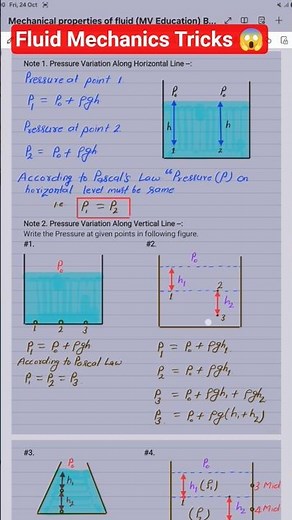 Fri, 24 Oct
Mechanical properties of fluid (MV Education) B...
Fluid Mechanics Tricks 😱
Note 1. Pressure Variation Along Horizontal Line –:
Pressure at point 1
P₁ = P₀ + ρgh
Pressure at point 2
P₂ = P₀ + ρgh
P₀ P₀
h h
1 2
According to Pascal's Law "Pressure (P) on
horizontal level must be same
i.e. P₁ = P₂
Note 2. Pressure Variation Along Vertical Line –:
Write the Pressure at given points in following figure.
#1.
P₀
1 2 3
P₁ = P₀ + ρgh
According to Pascal Law
P₁ = P₂ = P₃
#2.
P₀
h₁
1 2
h₂
3
P₁ = P₀ + ρgh₁
P₂ = P₀ + ρgh₁
P₃ = P₀ + ρgh₁ + ρgh₂
P₃ = P₀ + ρg(h₁+h₂)
#3.
P₀
h₁
h₂
#4.
P₀
h₁ (ρ₁)
3 Mid
1
h₂
4 Mid
(ρ₂)